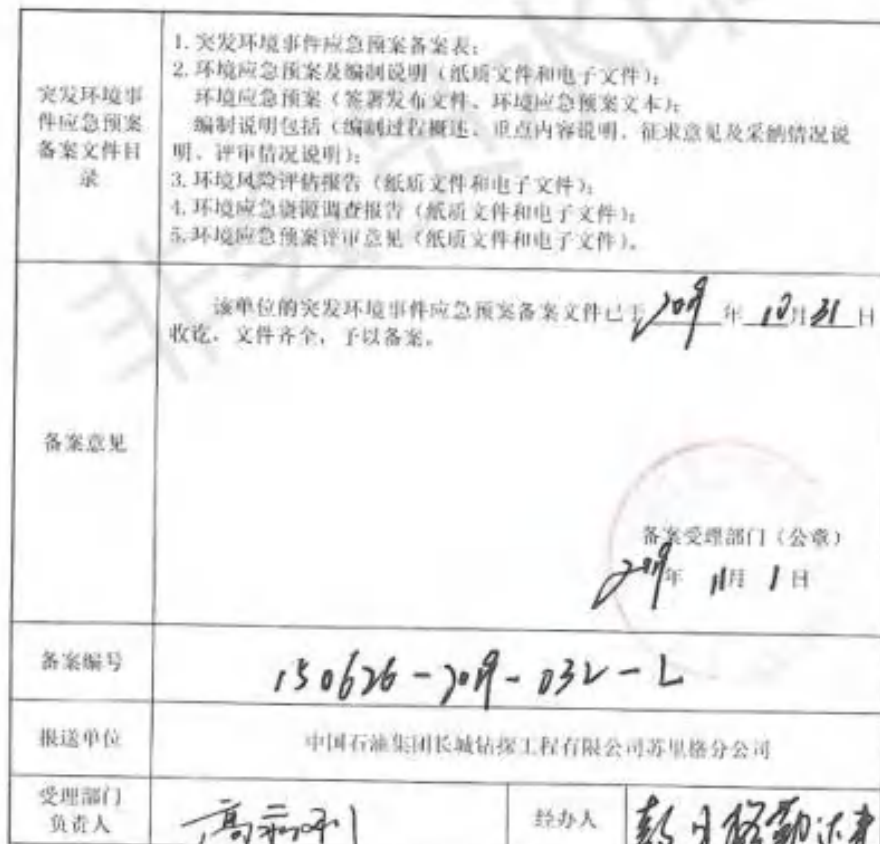 突发环境事
件应急预案
备案文件目
录
1.突发环境事件应急预案备案表;
2.环境应急预案及编制说明(纸质文件和电子文件);
环境应急预案(签署发布文件、环境应急预案文本);
编制说明包括(编制过程概述、重点内容说明、征求意见及采纳情况说
明、评审情况说明);
3.环境风险评估报告(纸质文件和电子文件);
4.环境应急资源调查报告(纸质文件和电子文件);
5.环境应急预案评审意见(纸质文件和电子文件)。
备案意见
该单位的突发环境事件应急预案备案文件已于2019年10月31日
收讫,文件齐全,予以备案。
备案受理部门(公章)
2019年 11月 1日
备案编号
150626-2019-032-L
报送单位
中国石油集团长城钻探工程有限公司苏里格分公司
受理部门
负责人
经办人